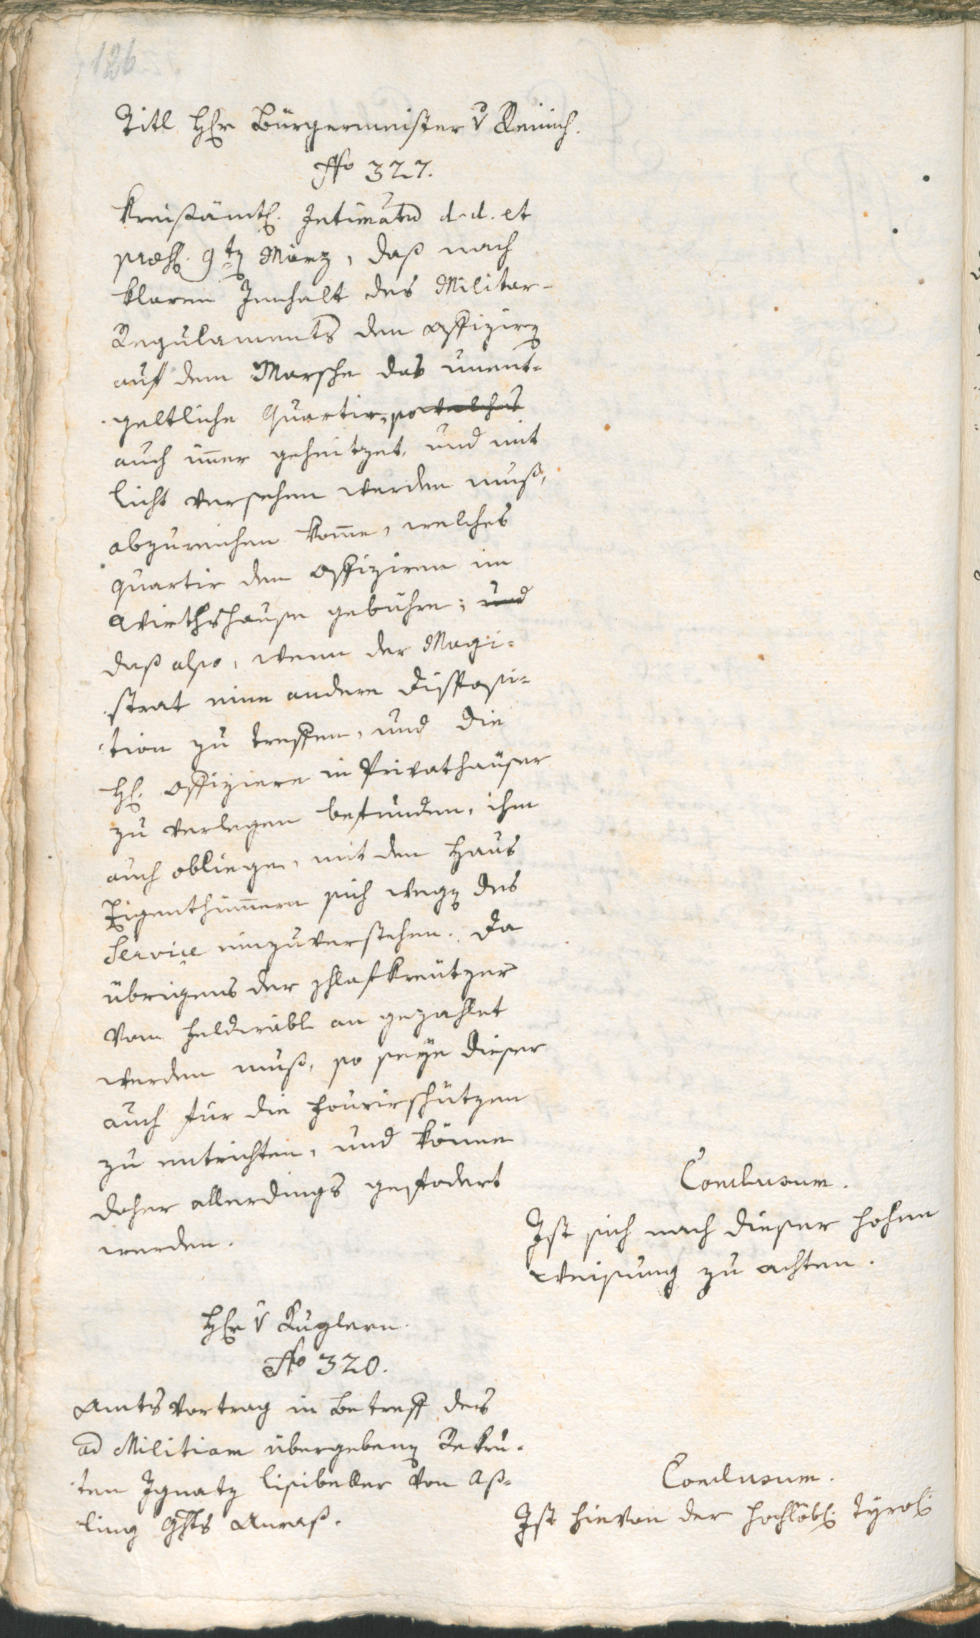 126
Titl. Hr. Bürgermeister v Reinisch.
No 327.
Kreisämtl. Intimatum d. d. et
præs. 9ten März, daß nach
klaren Innhalt des Militar-
Regulaments den Offiziren
auf dem Marsche das unent-
geltliche Quartir, so welches
auch immer geheitzet, und mit
licht versehen werden muß,
abzureichen komme, welches
Quartir den Offiziren im
Wirthshause gebühre; und
daß also, wenn der Magi-
strat eine andere Disposi-
tion zu treffen, und die
H. Offiziere in Privathäuser
zu verlegen befunden, ihm
auch obliege, mit den Haus
Eigenthümmern sich wegen des
Service einzuverstehen. Da
übrigens der schlafkreutzer
vom Feldwäbl an gezahlet
werden muß, so seye dieser
auch für die Fourirschützen
zu entrichten, und könne
daher allerdings gefodert
werden.
Conclusum.
Ist sich nach dieser hohen
Weisung zu achten.
Hr. v Kuglern.
No 320.
Amtsvortrag in Betreff des
ad Militiam übergebenen Rekru-
ten Ignatz Lisibeller von Aß-
ling Ghts Anraß.
Conclusum.
Ist hievon der hochlöbl. Tyrol.